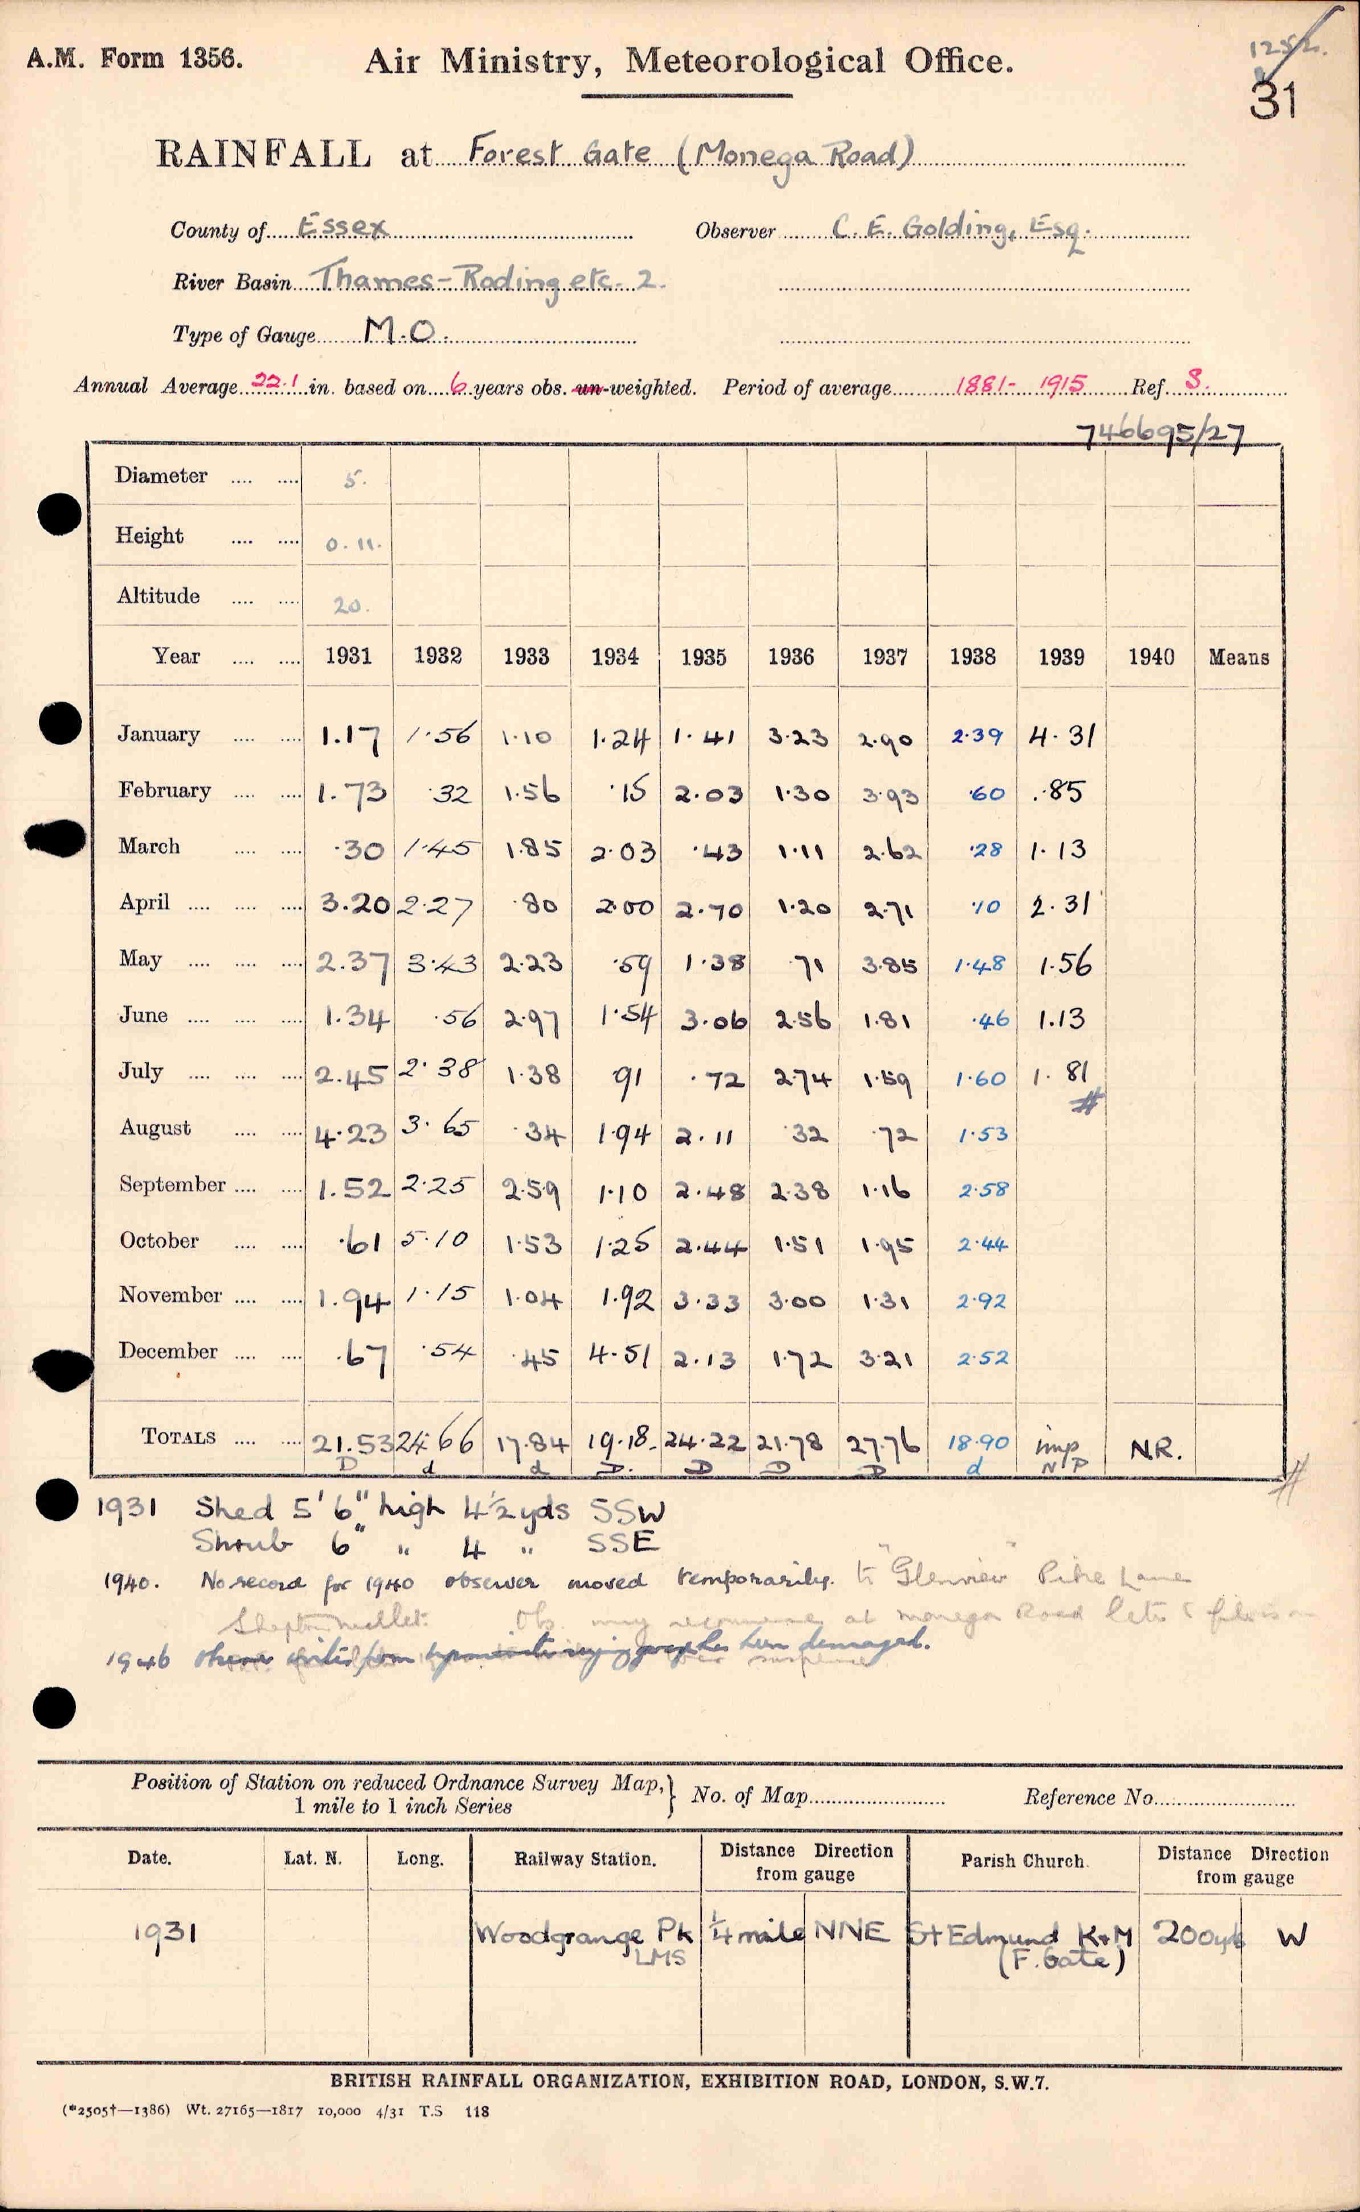 A.M. Form 1356.
Air Ministry, Meteorological Office.
1252.
31
RAINFALL at Forest Gate (Monega Road)
County of Essex Observer C. E. Golding, Esq.
River Basin Thames - Roding etc. 2.
Type of Gauge M.O.
Annual Average 22.1 in. based on 6 years obs. un-weighted. Period of average 1881- 1915 Ref. S.
746695/27
Diameter .... .... 5.
Height .... .... 0.11.
Altitude .... .... 20.
Year .... .... 1931 1932 1933 1934 1935 1936 1937 1938 1939 1940 Means
January .... .... 1.17 1.56 1.10 1.24 1.41 3.23 2.90 2.39 4.31
February .... .... 1.73 .32 1.56 .15 2.03 1.30 3.93 .60 .85
March .... .... .30 1.45 1.85 2.03 .43 1.11 2.62 .28 1.13
April .... .... .... 3.20 2.27 .80 2.00 2.70 1.20 2.71 .10 2.31
May .... .... .... 2.37 3.43 2.23 .59 1.38 .71 3.85 1.48 1.56
June .... .... .... 1.34 .56 2.97 1.54 3.06 2.56 1.81 .46 1.13
July .... .... .... 2.45 2.38 1.38 .91 .72 2.74 1.59 1.60 1.81
#
August .... .... 4.23 3.65 .34 1.94 2.11 .32 .72 1.53
September .... .... 1.52 2.25 2.59 1.10 2.48 2.38 1.16 2.58
October .... .... .61 5.10 1.53 1.25 2.44 1.51 1.95 2.44
November .... .... 1.94 1.15 1.04 1.92 3.33 3.00 1.31 2.92
December .... .... .67 .54 .45 4.51 2.13 1.72 3.21 2.52
TOTALS .... .... 21.53 24.66 17.84 19.18 24.22 21.78 27.76 18.90 imp NR.
D d d D. D D D d N P
#
1931 Shed 5' 6" high 4½ yds SSW
Shrub 6" " 4 " SSE
1940. No record for 1940 observer moved temporarily. to "Glenview" Pike Lane
Shepton Mallet. Obs. may recommence at Monega Road later
1946 been damaged.
Position of Station on reduced Ordnance Survey Map, } No. of Map Reference No.
1 mile to 1 inch Series
Date. Lat. N. Long. Railway Station. Distance Direction from gauge Parish Church. Distance Direction from gauge
1931 Woodgrange Pk ¼ mile NNE St Edmund K+M 200 yds W
LMS (F. Gate)
BRITISH RAINFALL ORGANIZATION, EXHIBITION ROAD, LONDON, S.W.7.
(*2505†—1386) Wt. 27165—1817 10,000 4/31 T.S 118